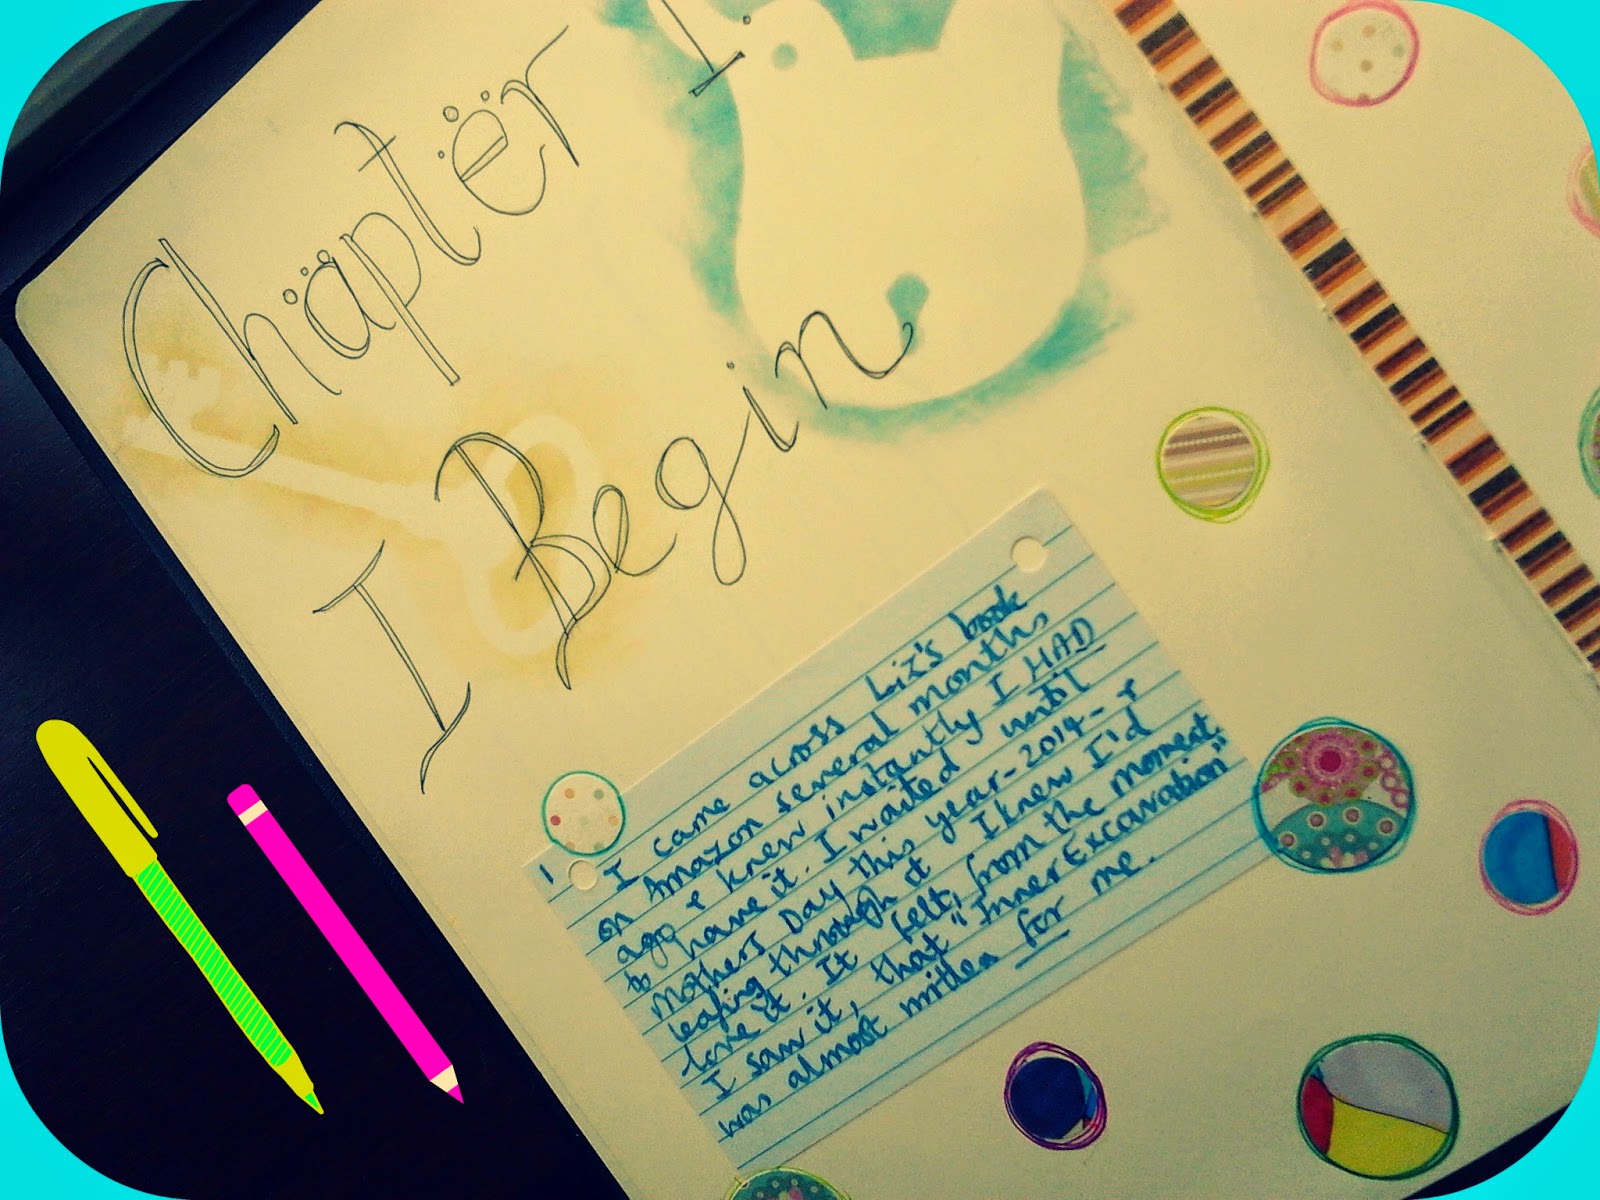 Chapter 1.
I Begin
1 I came across Liz's book
on Amazon several months
ago & knew instantly I HAD
to have it. I waited until
Mothers Day this year - 2014 - &
leafing through it I knew I'd
love it. It felt, from the moment
I saw it, that "Inner Excavation"
was almost written for me.